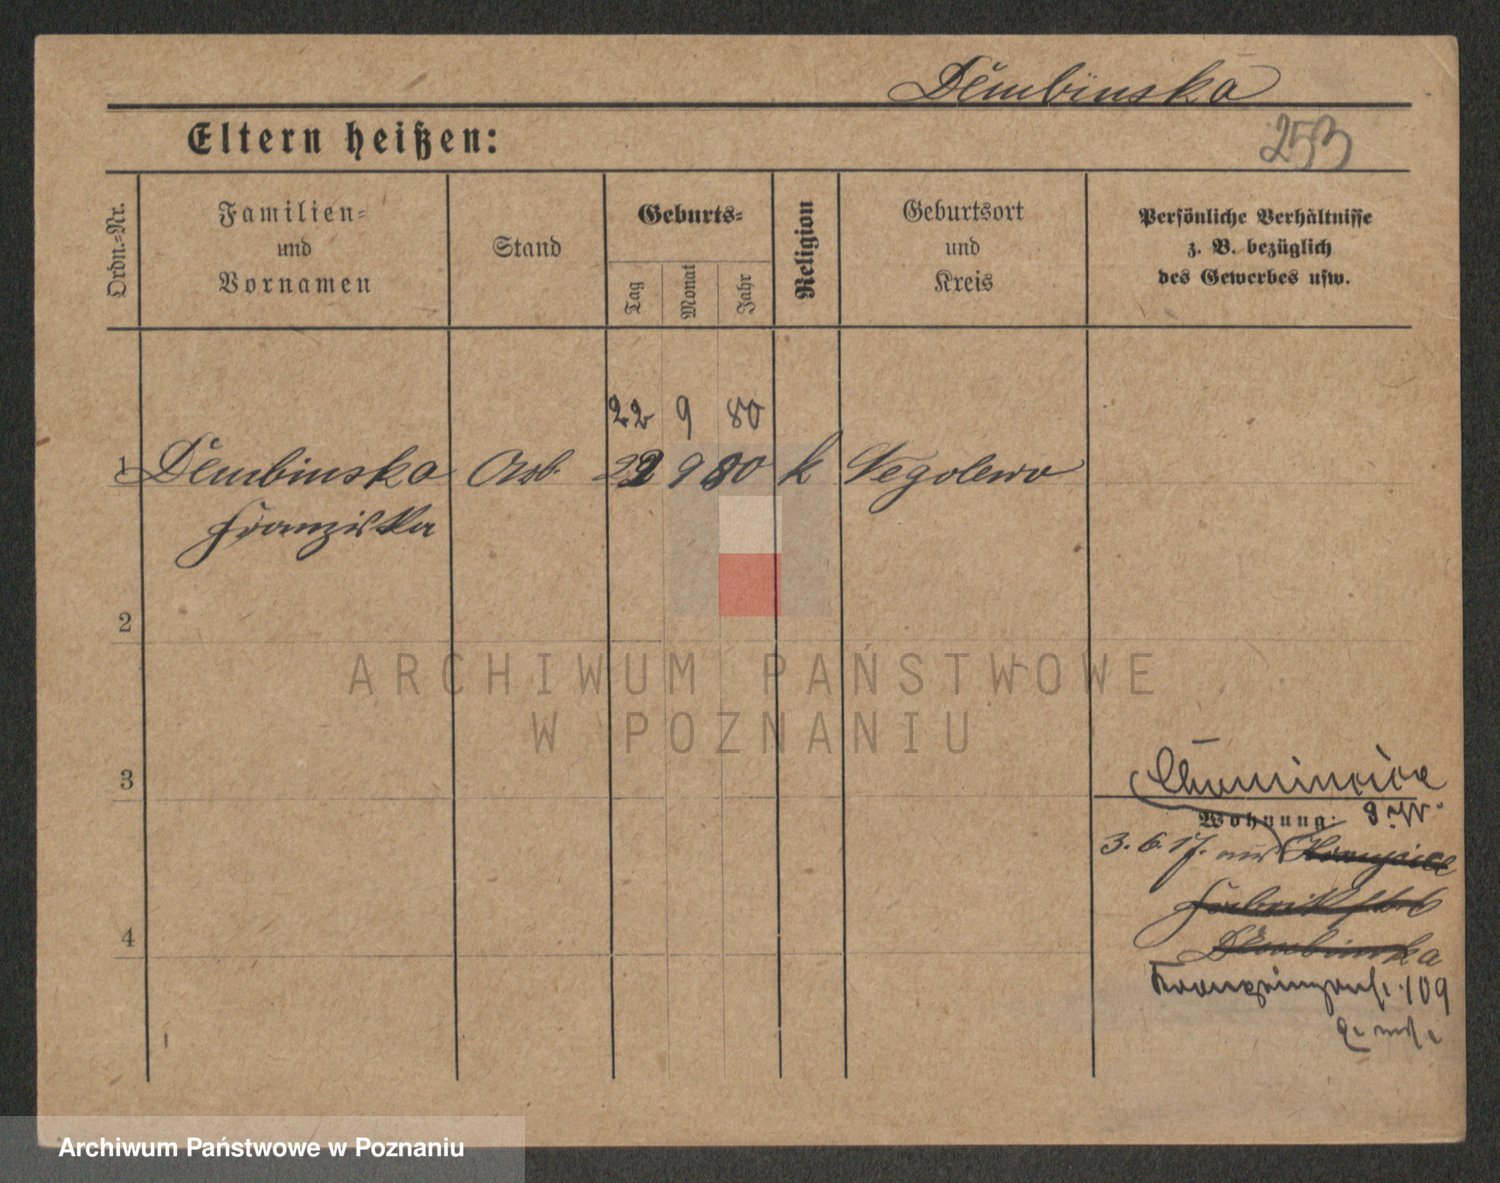 Dembinska
Eltern heißen:
253
Ordn.-Nr.
Familien-
und
Vornamen
Stand
Geburts-
Tag
Monat
Jahr
Religion
Geburtsort
und
Kreis
Persönliche Verhältnisse
z. B. bezüglich
des Gewerbes usw.
22 9 80
1 Dembinska Arb. 22 9 80 k
Franziska
2
3
4
Wohnung:
3. 6. 17. aus
Dembinska
Kronprinzenst. 109
ARCHIWUM PAŃSTWOWE
W POZNANIU
Archiwum Państwowe w Poznaniu